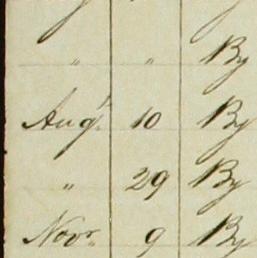 " " By
Augt. 10 By
" 29 By
Novr. 9 By